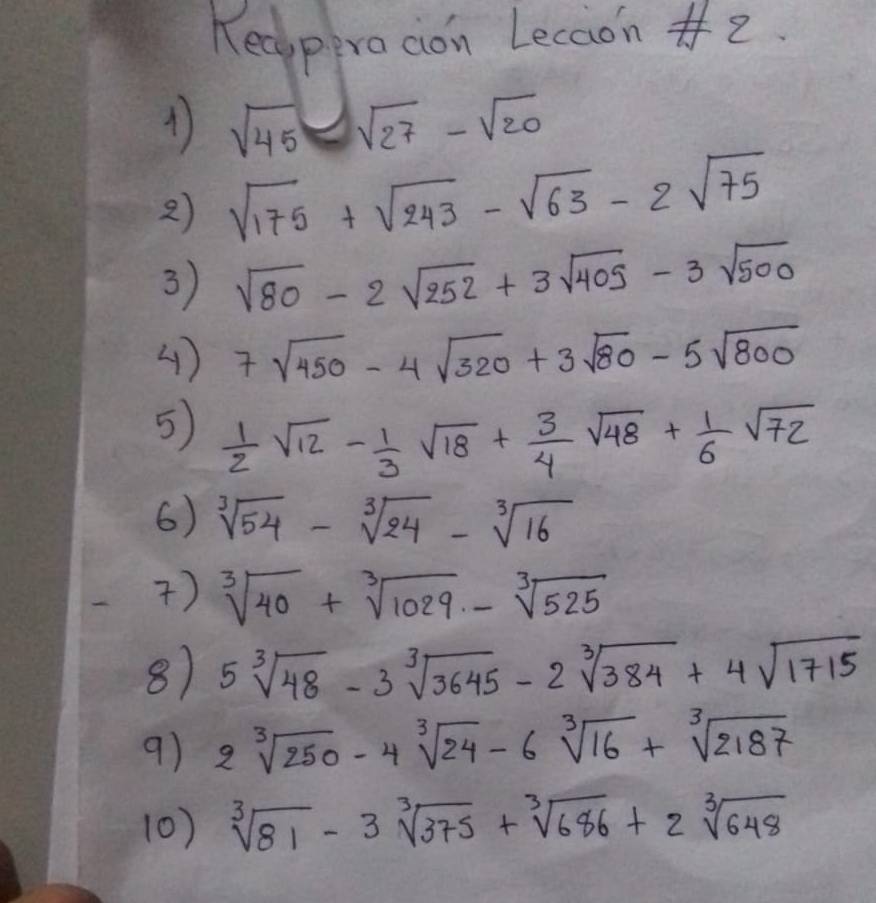 Recuperación Lección #2.
1) √45 - √27 - √20
2) √175 + √243 - √63 - 2√75
3) √80 - 2√252 + 3√405 - 3√500
4) 7√450 - 4√320 + 3√80 - 5√800
5) 1/2 √12 - 1/3 √18 + 3/4 √48 + 1/6 √72
6) ∛54 - ∛24 - ∛16
- 7) ∛40 + ∛1029 - ∛525
8) 5∛48 - 3∛3645 - 2∛384 + 4√1715
9) 2∛250 - 4∛24 - 6∛16 + ∛2187
10) ∛81 - 3∛375 + ∛686 + 2∛648